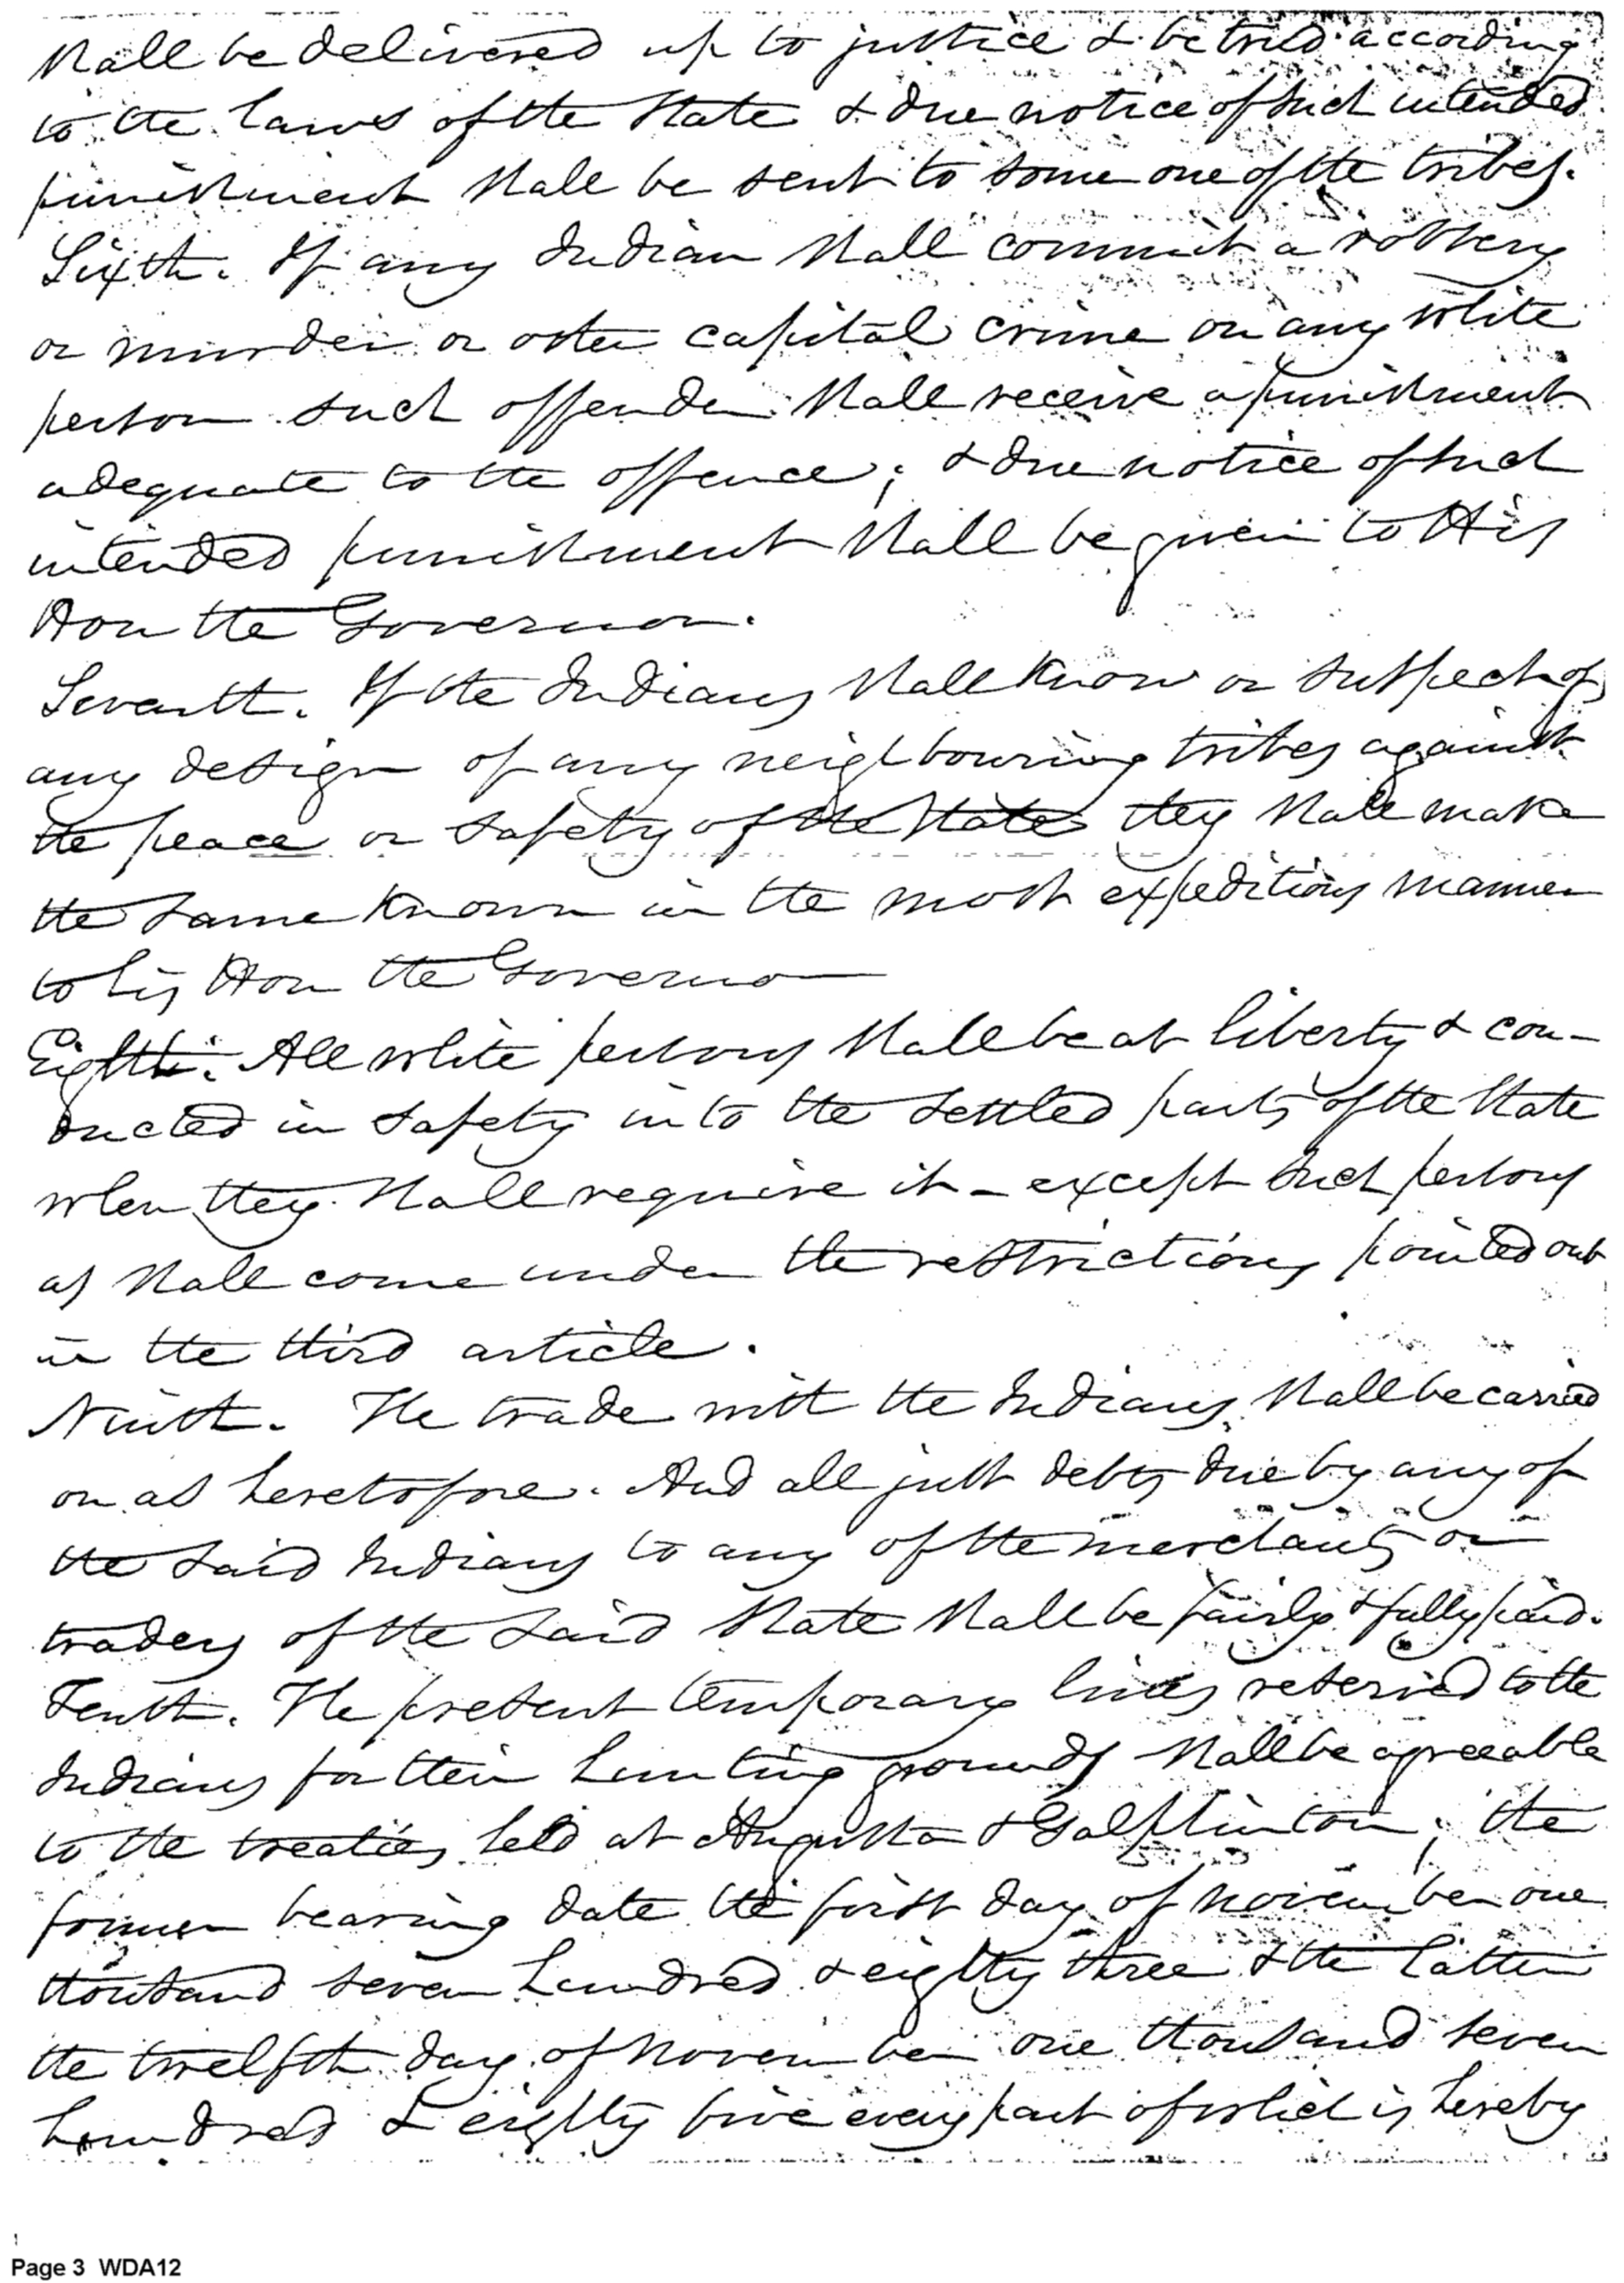 shall be delivered up to justice & be tried according
to the laws of the State & due notice of such intended
punishment shall be sent to some one of the tribes.
Sixth. If any Indian shall commit a robbery
or murder or other capital crime on any white
person such offender shall receive a punishment
adequate to the offence; & due notice of such
intended punishment shall be given to His
Hon the Governor.
Seventh. If the Indians shall know or suspect of
any design of any neighbouring tribes against
the peace or safety of the State they shall make
the same known in the most expeditious manner
to his Hon the Governor
Eighth. All white persons shall be at liberty & con-
ducted in safety into the settled parts of the State
when they shall require it - except such persons
as shall come under the restrictions pointed out
in the third article.
Ninth. The trade with the Indians shall be carried
on as heretofore. And all just debts due by any of
the said Indians to any of the merchants or
traders of the said State shall be fairly & fully paid.
Tenth. The present temporary lines reserved to the
Indians for their hunting grounds shall be agreeable
to the treaties held at Augusta & Galphinton; the
former bearing date the first day of November one
thousand seven hundred & eighty three & the latter
the twelfth day of November one thousand seven
hundred & eighty five every part of which is hereby
Page 3 WDA12